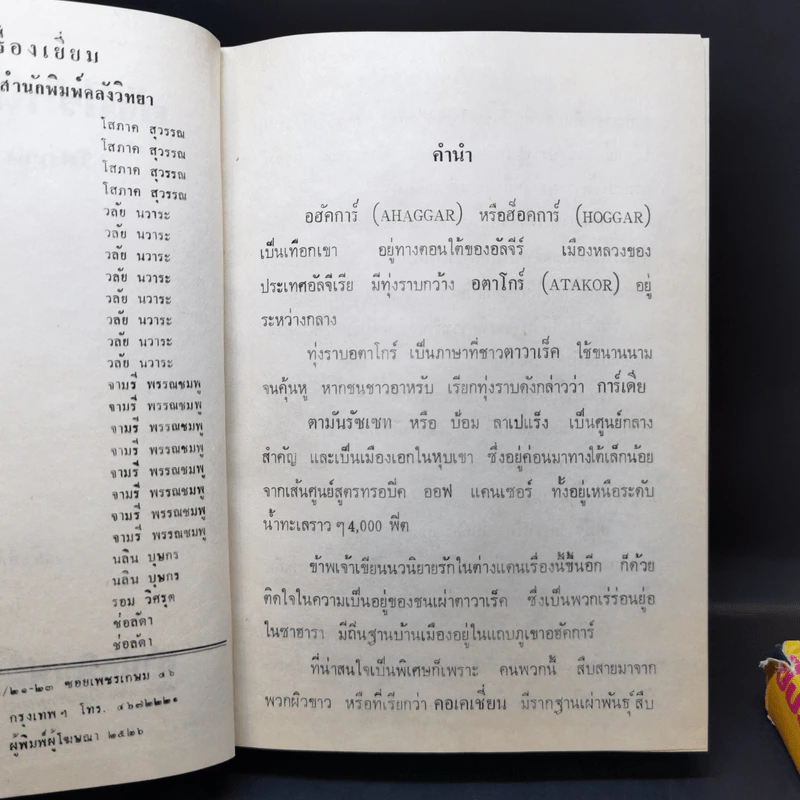 รื่องเยี่ยม
สำนักพิมพ์คลังวิทยา
โสภาค สุวรรณ
โสภาค สุวรรณ
โสภาค สุวรรณ
โสภาค สุวรรณ
วลัย นวาระ
วลัย นวาระ
วลัย นวาระ
วลัย นวาระ
วลัย นวาระ
วลัย นวาระ
วลัย นวาระ
วลัย นวาระ
จามรี พรรณชมพู
จามรี พรรณชมพู
จามรี พรรณชมพู
จามรี พรรณชมพู
จามรี พรรณชมพู
จามรี พรรณชมพู
จามรี พรรณชมพู
จามรี พรรณชมพู
นลิน บุษกร
นลิน บุษกร
รอม วิศรุต
ช่อลัดา
ช่อลัดา
/๒๑-๒๓ ซอยเพชรเกษม ๔๖
กรุงเทพฯ โทร. ๔๖๗๒๒๒๑
ผู้พิมพ์ผู้โฆษณา ๒๕๒๖
คำนำ
อฮัคการ์ (AHAGGAR) หรือฮ็อคการ์ (HOGGAR)
เป็นเทือกเขา อยู่ทางตอนใต้ของอัลจีร์ เมืองหลวงของ
ประเทศอัลจีเรีย มีทุ่งราบกว้าง อตาโกร์ (ATAKOR) อยู่
ระหว่างกลาง
ทุ่งราบอตาโกร์ เป็นภาษาที่ชาวตาวาเร็ค ใช้ขนานนาม
จนคุ้นหู หากชนชาวอาหรับ เรียกทุ่งราบดังกล่าวว่า การ์เดีย
ตามันรัซเซท หรือ ป้อม ลาเปแร็ง เป็นศูนย์กลาง
สำคัญ และเป็นเมืองเอกในหุบเขา ซึ่งอยู่ค่อนมาทางใต้เล็กน้อย
จากเส้นศูนย์สูตรทรอปิค ออฟ แคนเซอร์ ทั้งอยู่เหนือระดับ
น้ำทะเลราว ๆ 4,000 ฟีต
ข้าพเจ้าเขียนนวนิยายรักในต่างแดนเรื่องนี้ขึ้นอีก ก็ด้วย
ติดใจในความเป็นอยู่ของชนเผ่าตาวาเร็ค ซึ่งเป็นพวกเร่ร่อนอยู่
ในซาฮารา มีถิ่นฐานบ้านเมืองอยู่ในแถบภูเขาอฮัคการ์
ที่น่าสนใจเป็นพิเศษก็เพราะ คนพวกนี้ สืบสายมาจาก
พวกผิวขาว หรือที่เรียกว่า คอเคเซี่ยน มีรากฐานเผ่าพันธุ์สืบ